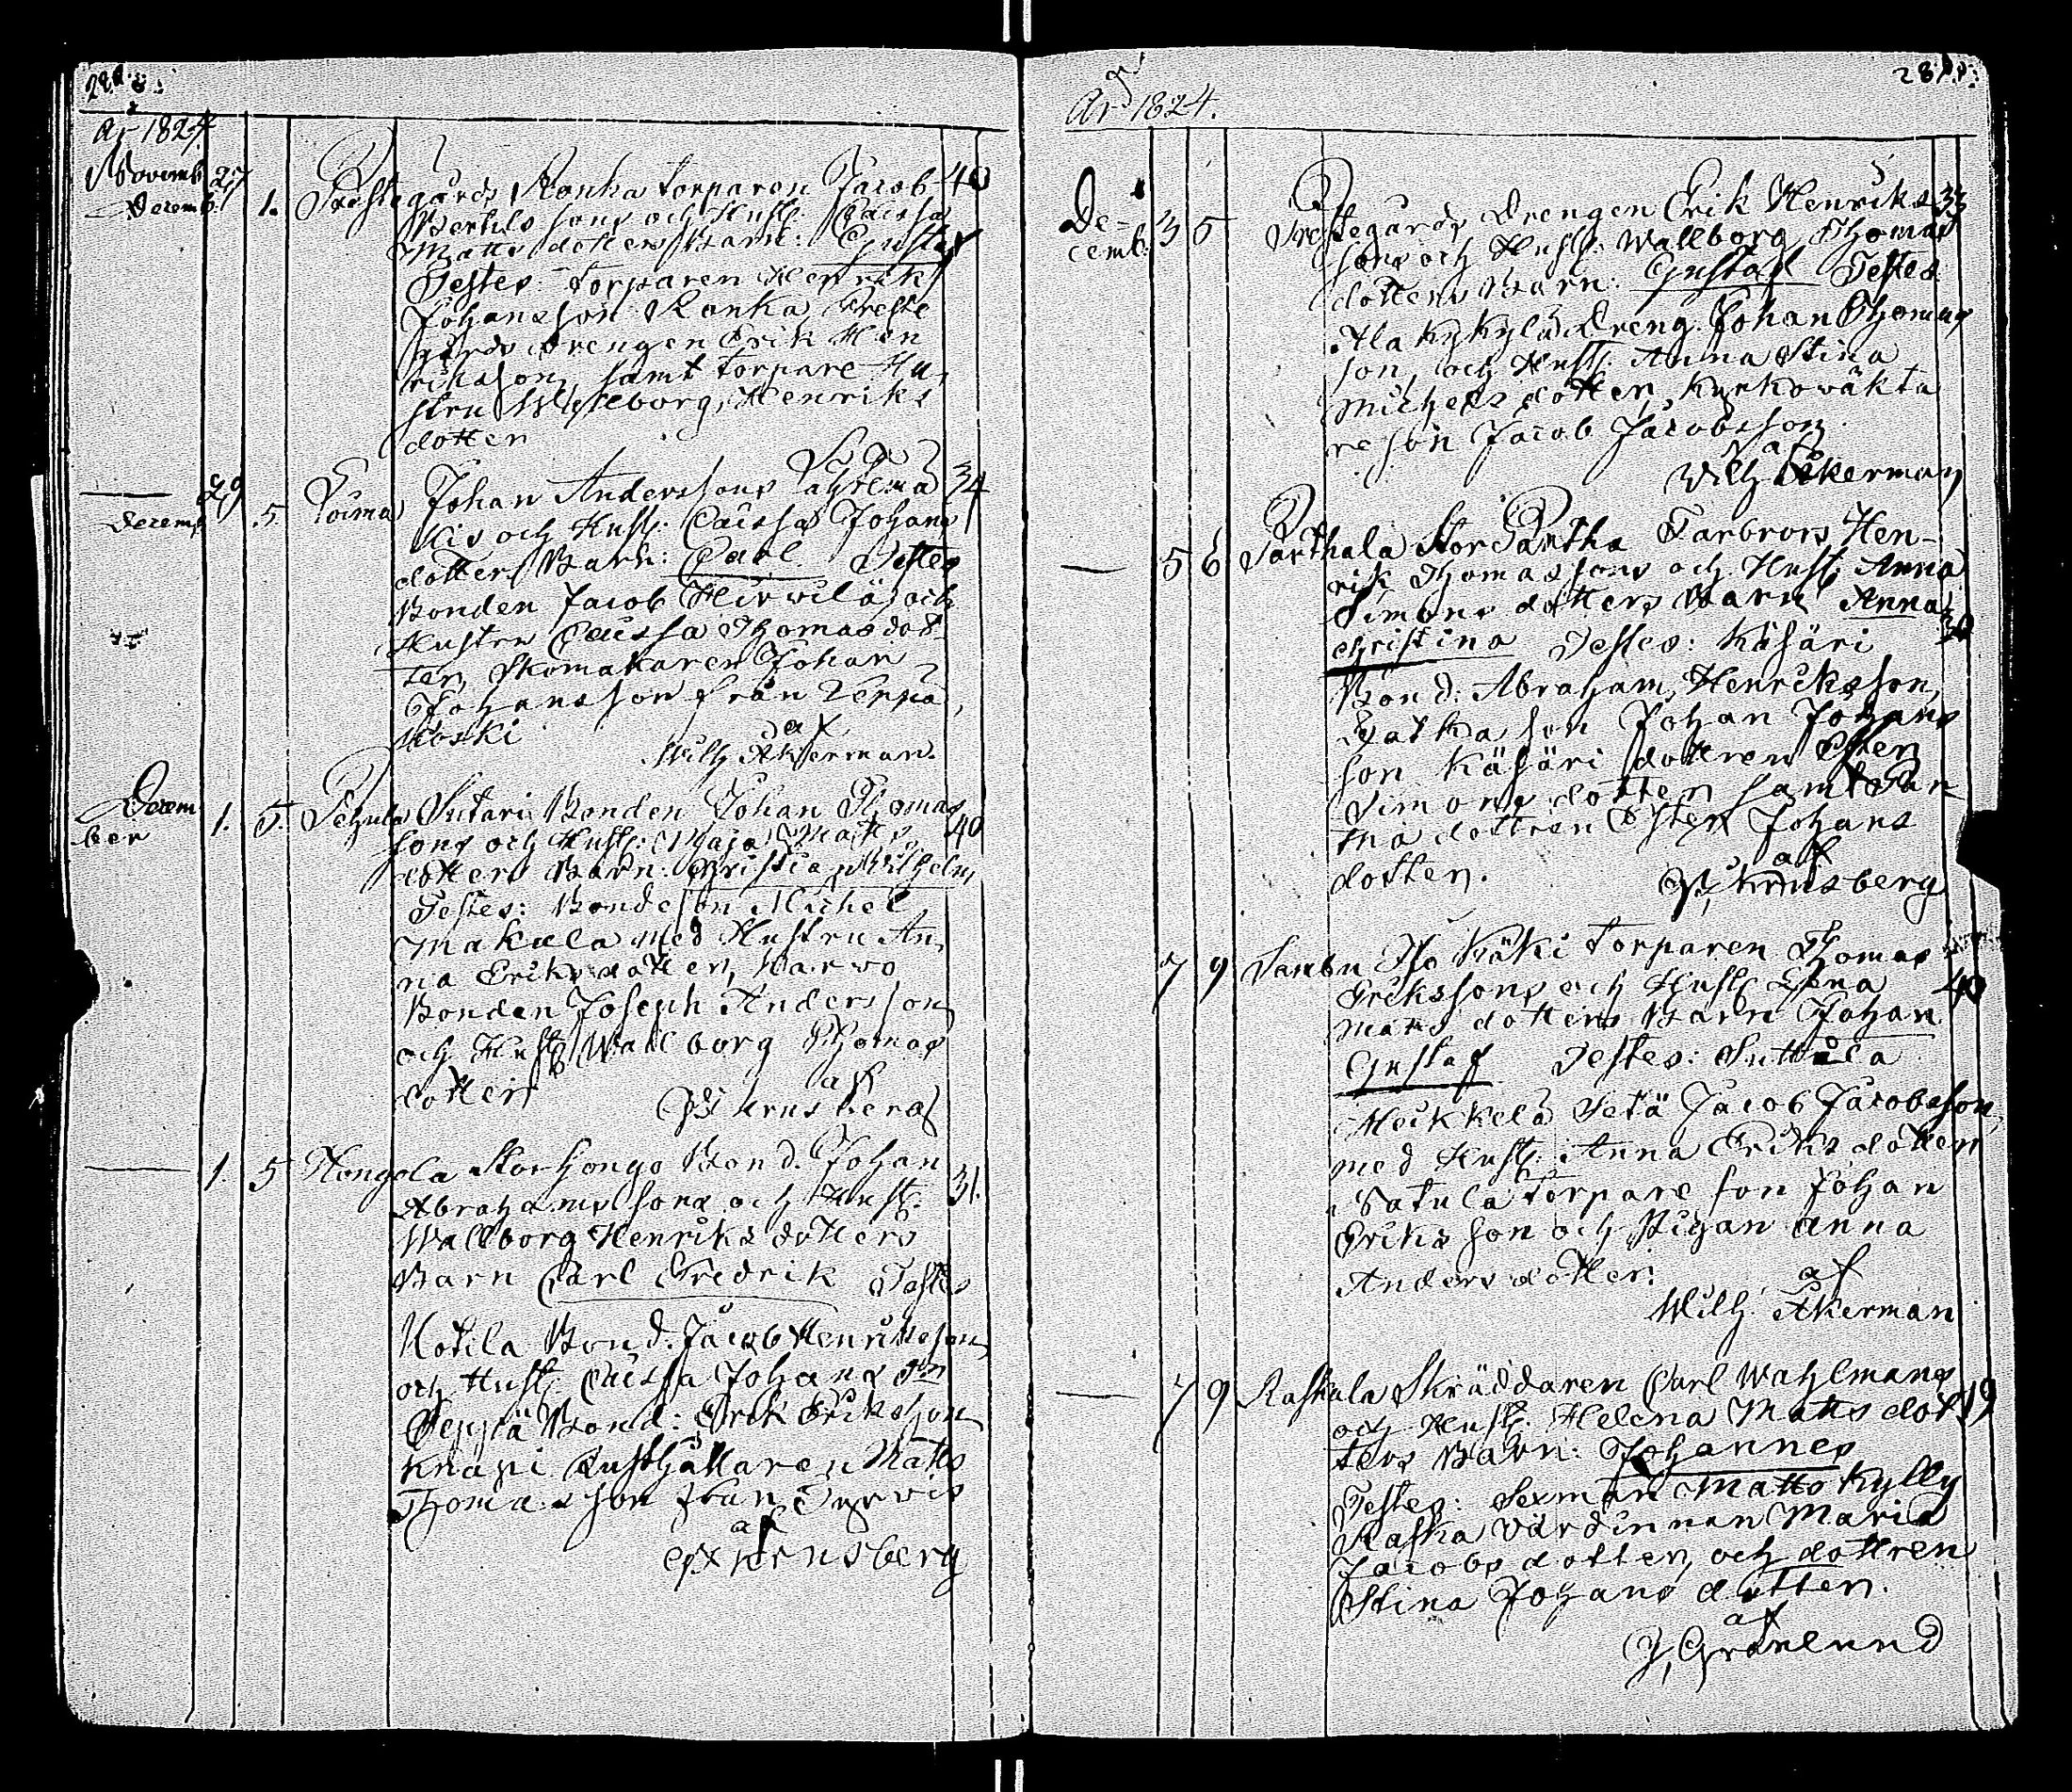 År 1824.
Novemb. 27
Decemb. 1. Prestegårds Ranka torparen Jacob 40
Bertils sons och Hust. Caissa
Matts dotters Barn: Gustaf
Testes: torparen Henrik
Johansson Ranka, Preste
gårds drengen Erik Hen
riksson, samt torpare Hu
stru Wallborg Henriks
dotter
29 Decemb. 5. Johan Anderssons 34
och Hust. Caissa Johans
dotters Barn: Carl. Testes
Bonden Jacob Hirvilä och
Hustru Caissa Thomas dot
ter, Skomakaren Johan
Johansson från Leppä
koski
af
Wilh Åkerman.
Decem
ber 1. 5. Pehula Sutari Bonden Johan Thomas 40
sons och Hust: Maja Matts
dotters Barn: Christian Wilhelm
Testes: Bondeson Michel
Makula med Hustru An
na Eriks dotter,
Bonden Joseph Andersson
och Hust Wallborg Thomas
dotter
af
1. 5 Hongola Storhongo Bond. Johan
Abrahamssons och Hust. 31.
Wallborg Henriks dotters
Barn Carl Fredrik Testes
Kotila Bond. Jacob Henriksson
och Hust Caissa Johans dr
Seppä Bond: Erik Eriksson
Knapi Rusthållaren Matts
Thomasson från
af
År 1824.
De-
cemb. 3 5 Prestegårds Drengen Erik Henriks 33
sons och Hust: Wallborg Thomas
dotters Barn: Gustaf Testes
Ala Kykylä Dreng. Johan Thomas
son, och Hust. Anna Stina
Michels dotter, Kyrkowäkta
re son Jacob Jacobsson
af
Wilh Åkerman
5 6 Parthala Hen-
rik Thomassons och Hust Anna
Simons dotters Barn Anna 30
Christina Testes: Käsäri
Bond: Abraham Henriksson,
son Johan Johans
son Käsäri dottren Ester
Simons dotter samt
dottren Ester Johans
dotter.
af
7 9 Sambu Iso Käki torparen Thomas
Erikssons och Hust Lena 40
Matts dotters Barn Johan
Gustaf Testes: Suttila
Heikkelä Setä Jacob Jacobsson,
med Hust. Anna Eriks dotter
Satula torpare son Johan
Eriksson och Pigan Anna
Anders dotter.
af
Wilh. Åkerman
7 9 Raskala Skräddaren Carl Wahlmans
och Hust. Helena Matts dot 19
ters Barn: Johannes
Testes: Sexman Matts Kylly
Raska Värdinnan Maria
Jacobs dotter, och dottren
Stina Johans dotter.
af
J, Grönlund